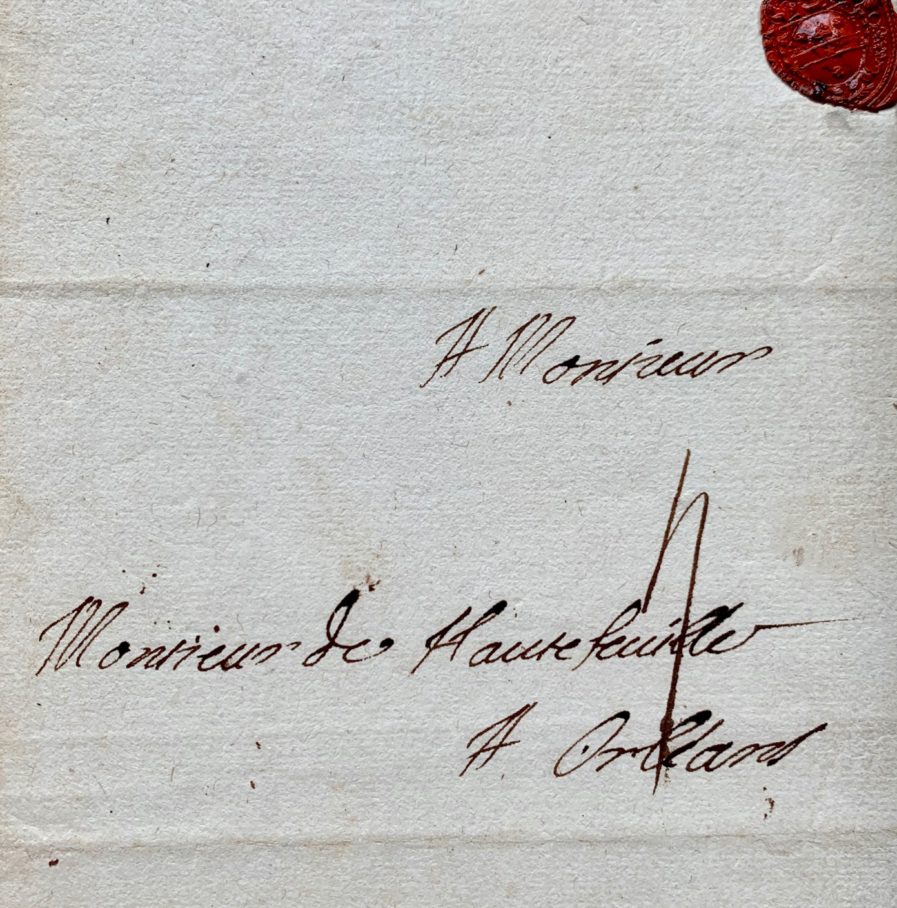 A Monsieur
Monsieur de Hautefeuille
A Orleans